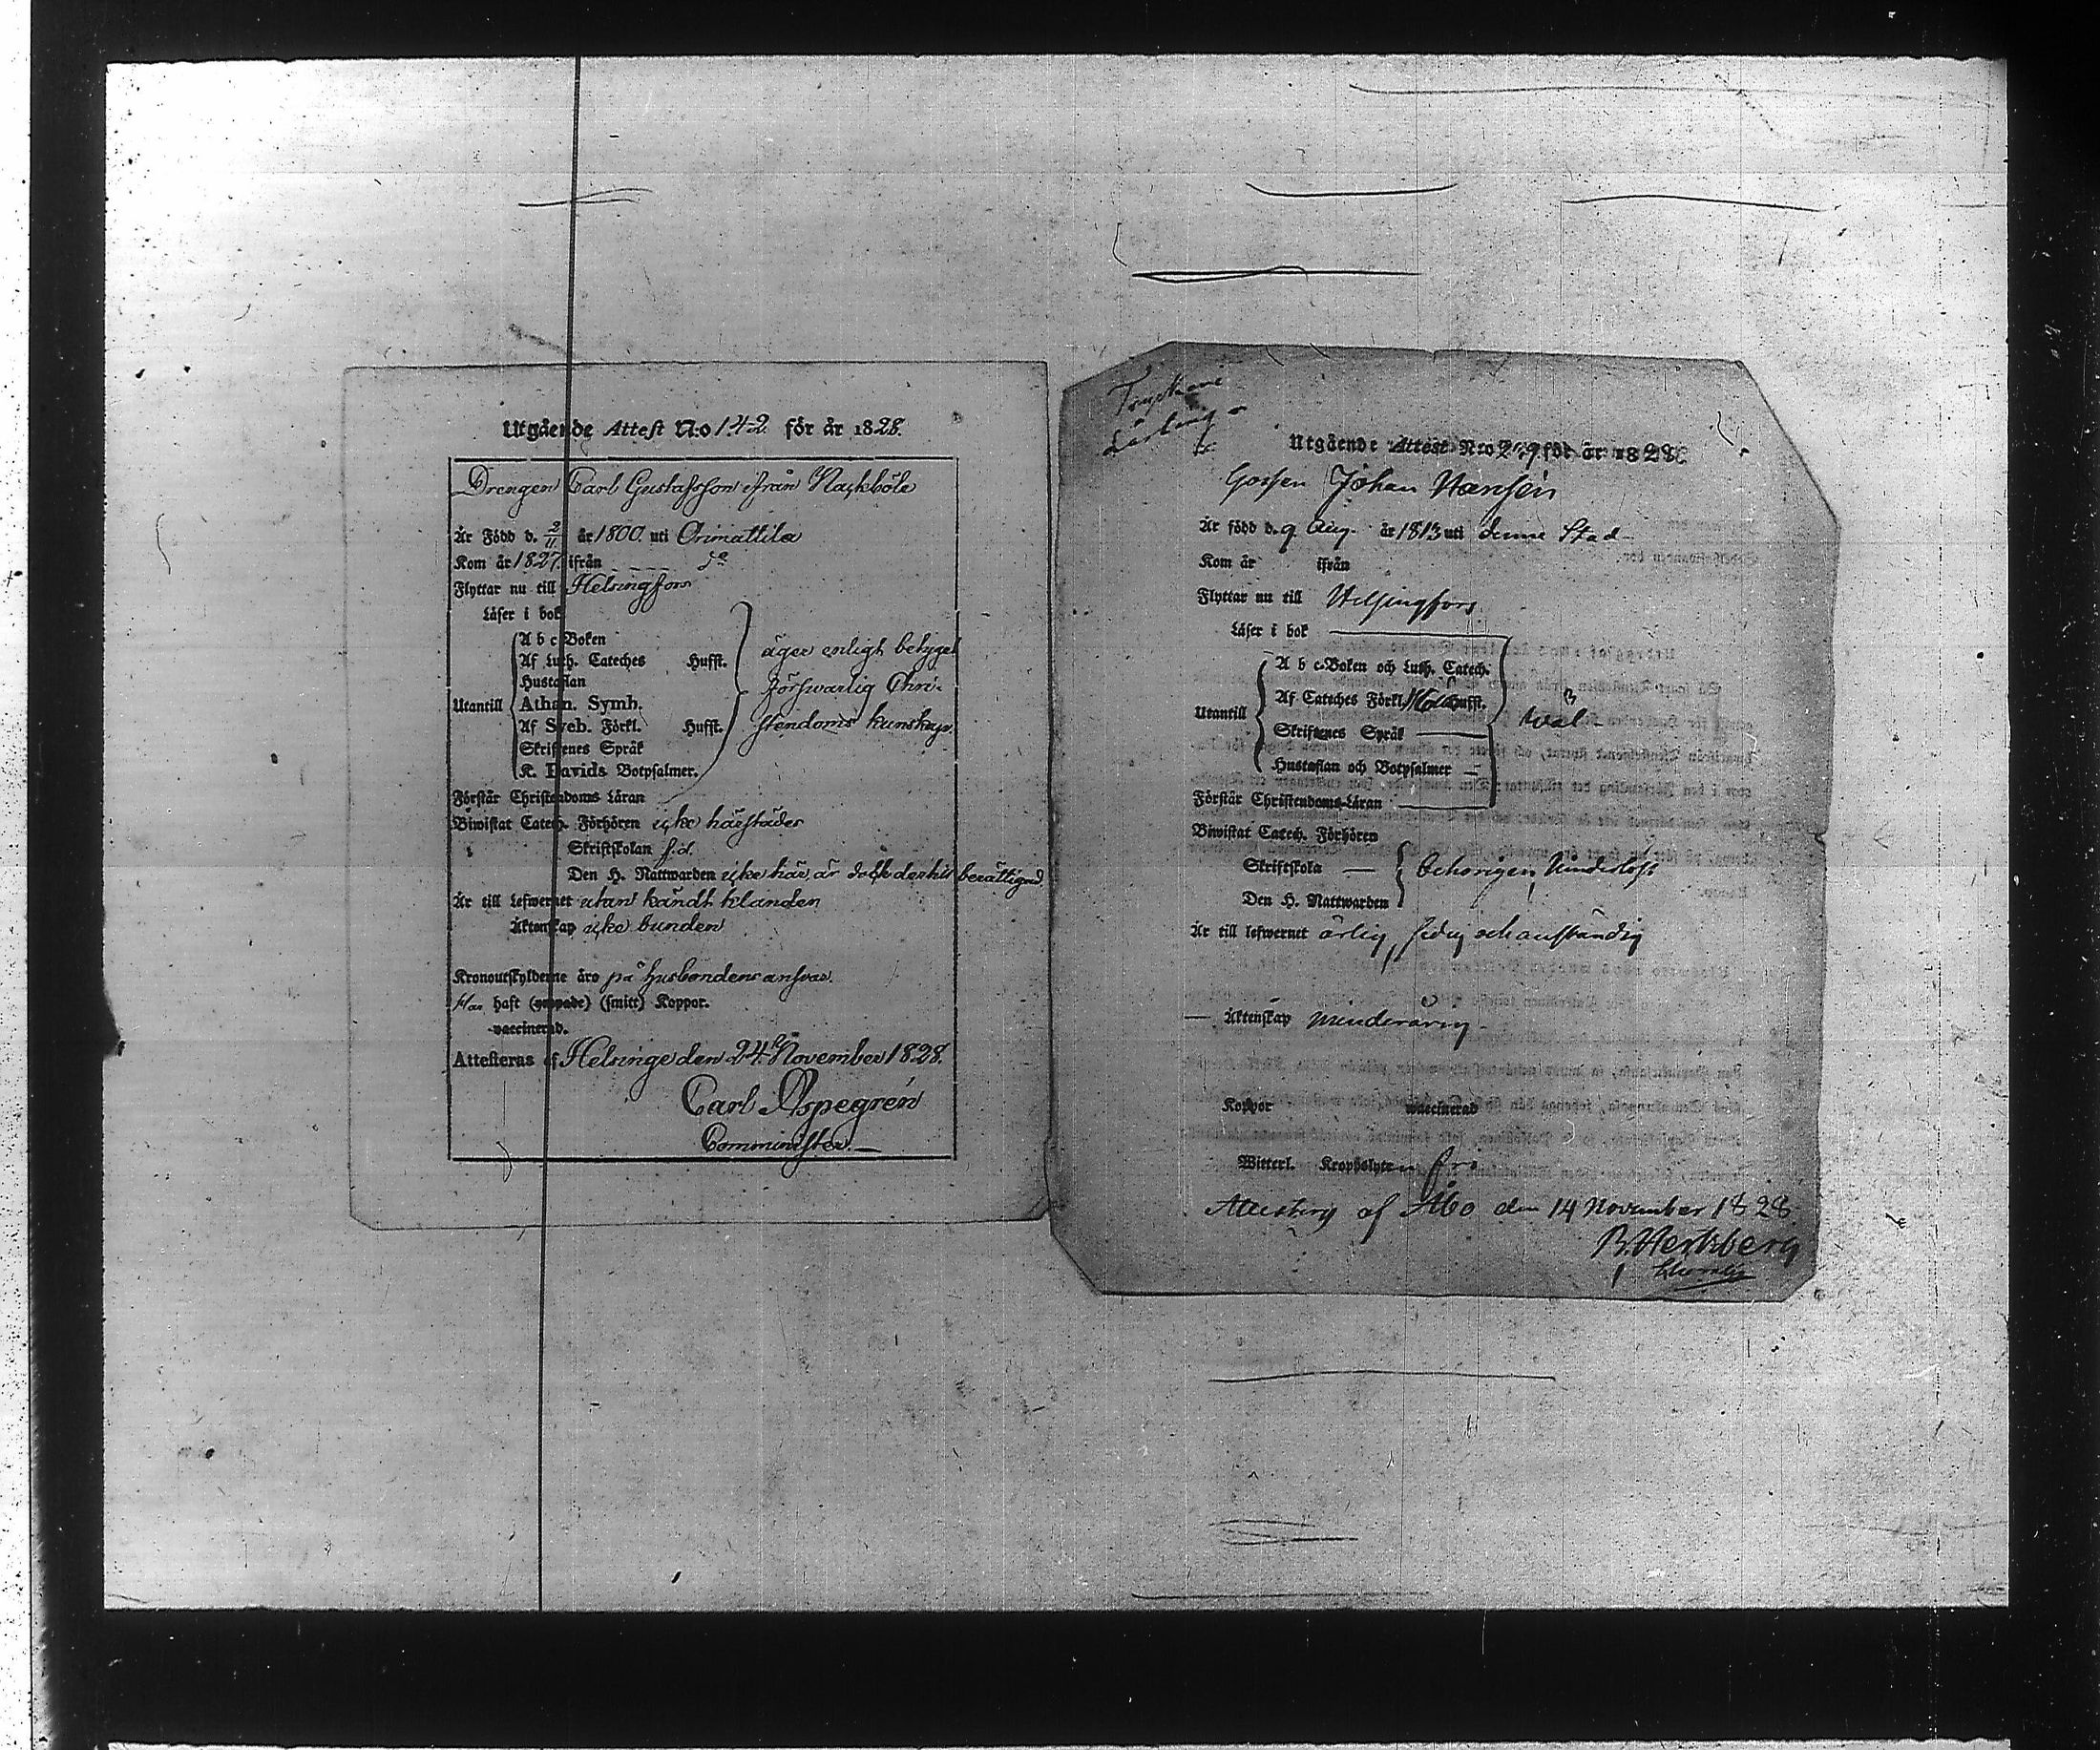 Utgående Attest N:o 142 för år 1828.
Drengen Carl Gustafsson ifrån Nackböle
Är Född d. 2/11 år 1800. uti Orimattila
Kom år 1827. ifrån do
Flyttar nu till Helsingfors
Läser i bok
A b c Boken
Af Luth. Cateches Hufst. äger enligt betyget
Hustaflan förswarlig Chri-
Utantill Athan. Symb.
Af Sveb. Förkl. Hufst. stendoms kunskap.
Skriftenes Språk
K. Davids Botpsalmer.
Förstår Christendoms Läran
Biwistat Catech. Förhören icke härstädes
Skriftskolan s.d.
Den H. Nattwarden icke här, är dock dertill berättigad.
Är till Lefwernet utan kändt klander
Äktenskap icke bunden
Kronoutskylderne äro på husbondens answar.
Har haft (ympade) (smitt) Koppor.
vaccinerad.
Attesteras af Helsinge den 24de November 1828.
Carl Aspegrén
Comminister.
Lärling
Utgående Attest N:o för år 1828
Gossen Johan Hansén
Är född d. 9 Aug. år 1813 uti denne Stad
Kom år ifrån
Flyttar nu till Helsingfors
Läser i bok
A b c-Boken och Luth. Catech.
Af Cateches Förkl. Hufst.
Utantill wäl
Skriftenes Språk
Hustaflan och Botpsalmer
Förstår Christendoms-Läran
Biwistat Catech. Förhören
Skriftskola behörigen
Den H. Nattwarden
Är till lefwernet ärlig, sedig och anständig
Äktenskap minderårig
Koppor vaccinerad
Witterl. Kroppslyten fri
af Åbo den 14 November 1828
B. Hertzberg